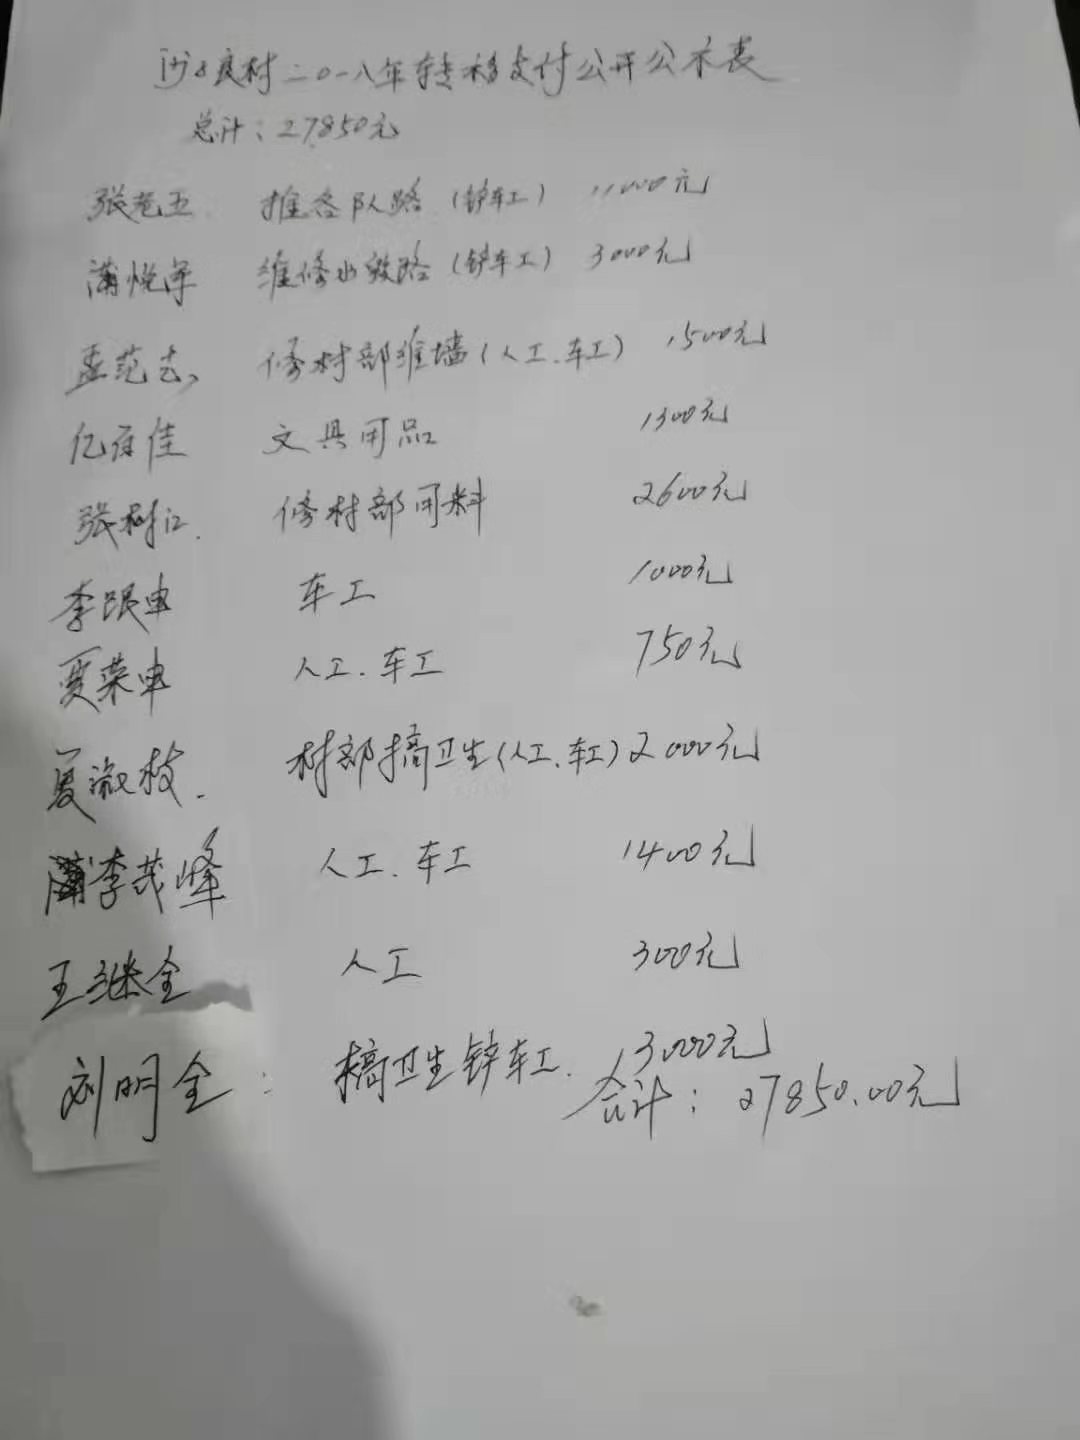 沙良村二〇一八年转移支付公开公示表
总计：27850元
张苍五 推各队路（铲车工） 11000元
蒲悦军 维修水毁路（铲车工） 3000元
孟范志 修村部维墙（人工.车工） 1500元
亿百佳 文具用品 1300元
张树江. 修村部用料 2600元
李跟申 车工 1000元
贾荣申 人工.车工 750元
夏淑枝. 村部搞卫生（人工.车工）2000元
李茂峰 人工.车工 1400元
王继全 人工 300元
刘明全： 搞卫生铲车工. 3000元
合计：27850.00元